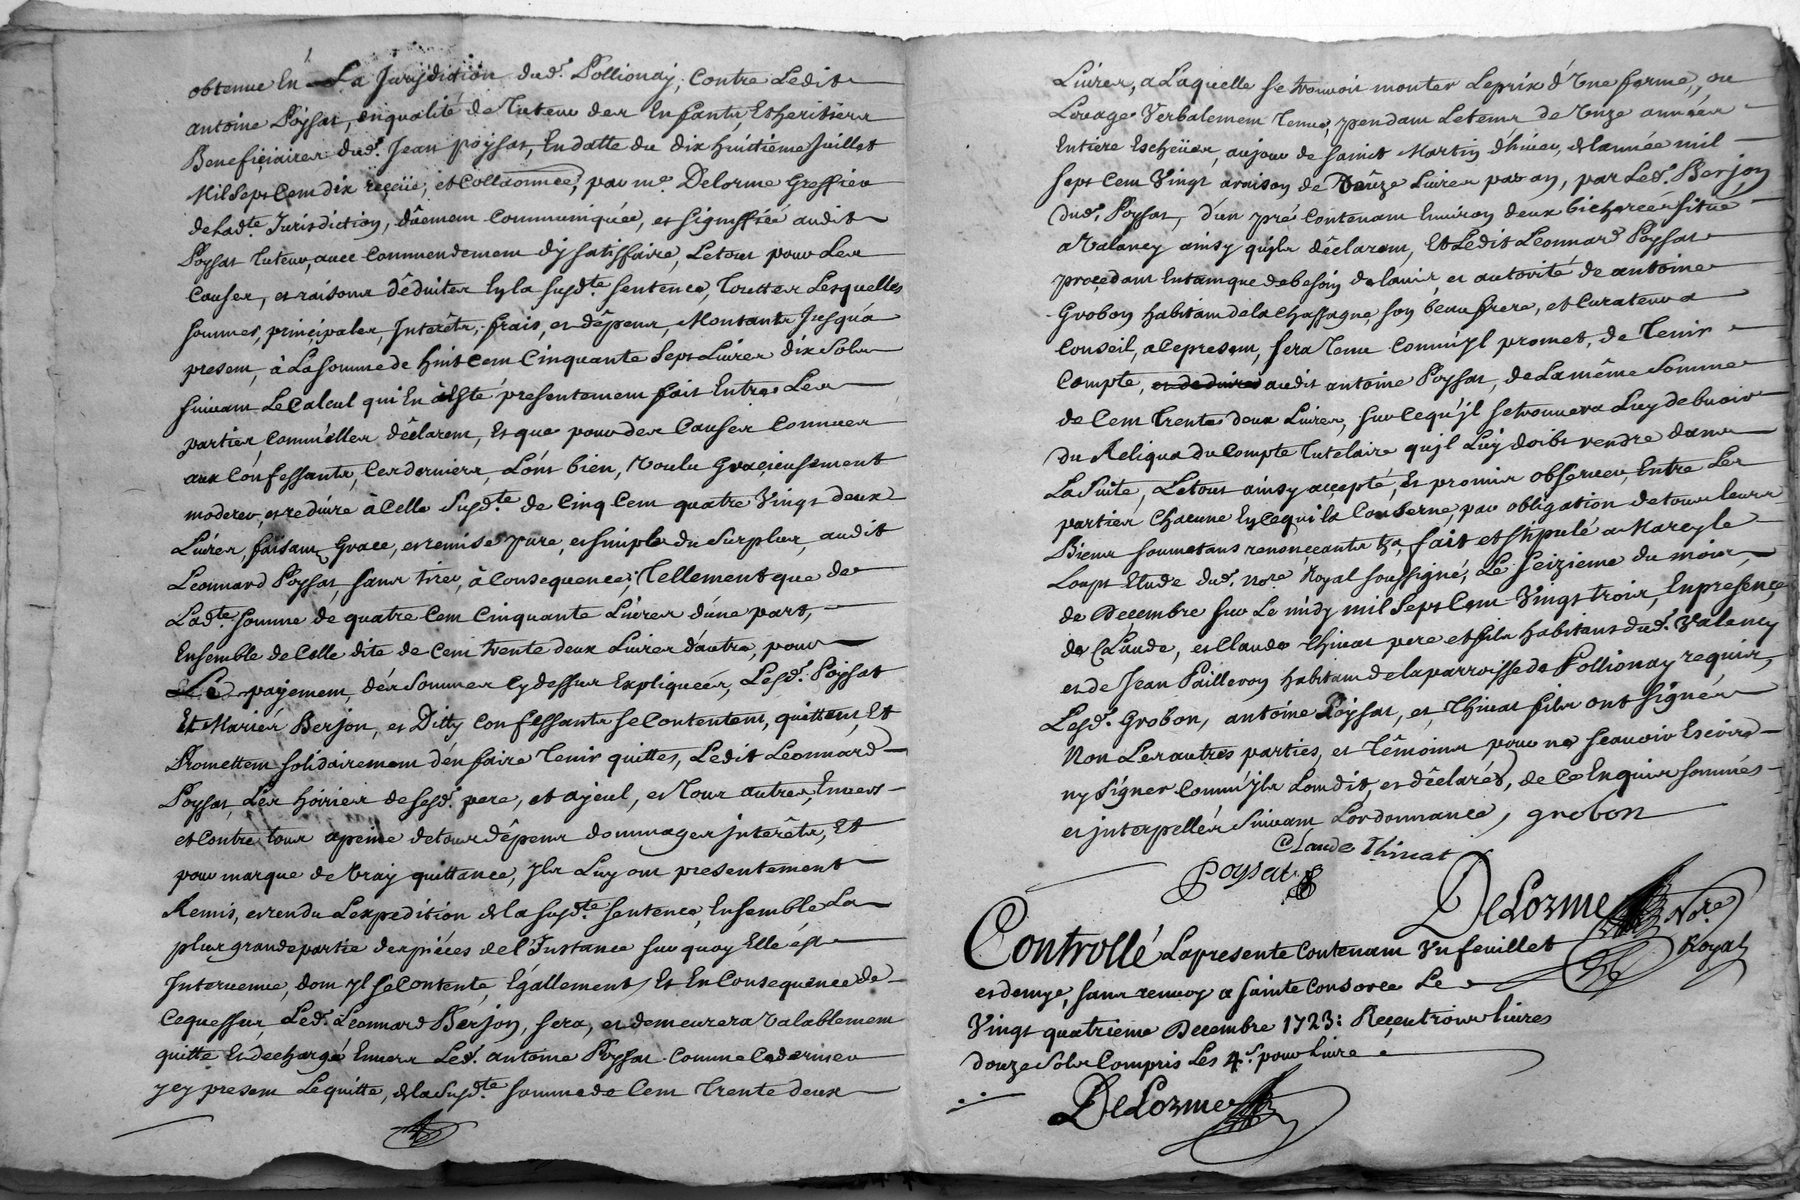 obtenue En La Jurisdiction dud.t Pollionay, contre Ledit
antoine Poysat, enqualité de Tuteur des Enfants, Et heritiers
Beneficiaires dud.t Jean poysat, Endatte du dix huitieme Juillet
Mil Sept Cent dix receüe, et collationnée, par m.e Delorme Greffier
de lad.te Jurisdiction, dûement communiquée, et signiffiée audit
Poysat Tuteur, avec Commendement d'y satisffaire, Letout pour Les
Causes, et raisons déduites En la susd.te sentence, Touttes Lesquelles
sommes, principales, Interêts, frais, et dêpens, Montants Jusqu'a
present, à La somme de huit cent Cinquante Sept Livres dix Sols
suivant Le Calcul qui En a Esté présentement fait Entre Les
parties, comm'elles dêclarent, Et que pour des Causes Connues
aux Confessants, Ces derniers, L'ont bien, voulu Gracieusement
moderer, et reduire à Celle Susd.te de Cinq Cent quatre Vingt deux
Livres, faisant Grace, et remise pure, et simple du Surplus, audit
Leonnard Poysat, sans tirer, à Consequence; Tellement que de
Lad.te somme de quatre Cent Cinquante Livres d'une part,
Ensemble de Celle dite de Cent trente deux Livres d'autre, pour
Le payement, des Sommes Cy dessus Expliquées, Lesd.t Poysat
Et Mariés Berjon, et Ditty Confessants se Contentent, quittent, Et
Promettent solidairement d'en faire Tenir quittes, Ledit Leonnard
Poysat, Les hoiries de sesd.t pere, et ayeul, et Tous autres, Envers
et Contre tous a peine de tous dêpens dommages interêts, Et
pour marque de Vray quittance, Ils Luy ont presentement
Remis, et rendu L'expedition de la susd.te sentence, Ensemble La
plus grande partie des piéces de l'Instance sur quoy Elle est
Intervenue, dont yl se Contente, Egallement, Et En Consequence de
Ce que ssus Led.t Leonnard Berjon, sera, et demeurera Valablement
quitte Et dechargé Envers Led.t antoine Poysat Comme Ce dernier
ycy present Le quitte, de la Susd.te somme de Cent Trente deux
Livres, a Laquelle se trouvoit monter Le prix d'Une ferme, ou
Loüage Verbalement Tenue, pendant Le tems de Unze années
Entiere Escheües, au jour de Sainct Martin d'hiver, de l'année mil
sept Cent Vingt a raison de Douze Livres par an, par Led.t Berjon
dud.t Poysat, d'un pré Contenant Environ deux bicherées situé
a Valancy ainsy qu'ils dêclarent, Et Ledit Leonnard Poysat
procedant Entantque de besoin de l'avis, et autorité de antoine
Grobon habitant de la Chassagne son beau frere, et Curateur a
Conseil, a Ce present, sera Tenu Comm'yl promet, de Tenir
Compte, et deduire audit antoine Poysat, de La même Somme
de Cent Trente deux Livres, sur Ce qu'jl se trouvera Luy debvoir
du Reliqua du Compte Tutelaire qu'jl Luy doibt rendre dans
La Suite, Letout ainsy accepté, Et promis observer, Entre Les
parties Chacune En Ce qui la Conserne, par obligation de tous leurs
Biens soumetans renonceants &a, fait et stipulé a Marcy le
Loup Etude dud.t no.re Royal soussigné, Le seizieme du mois
de Decembre sur Le midy mil Sept Cent Vingt trois, En presence
de Claude, et Claude Thivat pere et fils habitans dud.t Valancy
et de Jean Paillevoy habitant de la parroisse de Pollionay requis,
Lesd.t Grobon, antoine Poysat, et Thivat fils ont signés
Non Les autres parties, et Têmoins, pour ne sçeavoir Escrire
ny Signer Comm'jls L'ont dit, et dêclarés, de Ce Enquis sommés
et jnterpellés Suivant L'ordonnance, grobon
Claude Thivat
Poysat
DeLorme No.re
Royal
Controllé La presente Contenant Un feuillet
et demye, sans renvoy a sainte Consorce Le
Vingt quatrieme Decembre 1723: Reçeu trois livres
douze Sols Compris Les 4.s pour livre
DeLorme